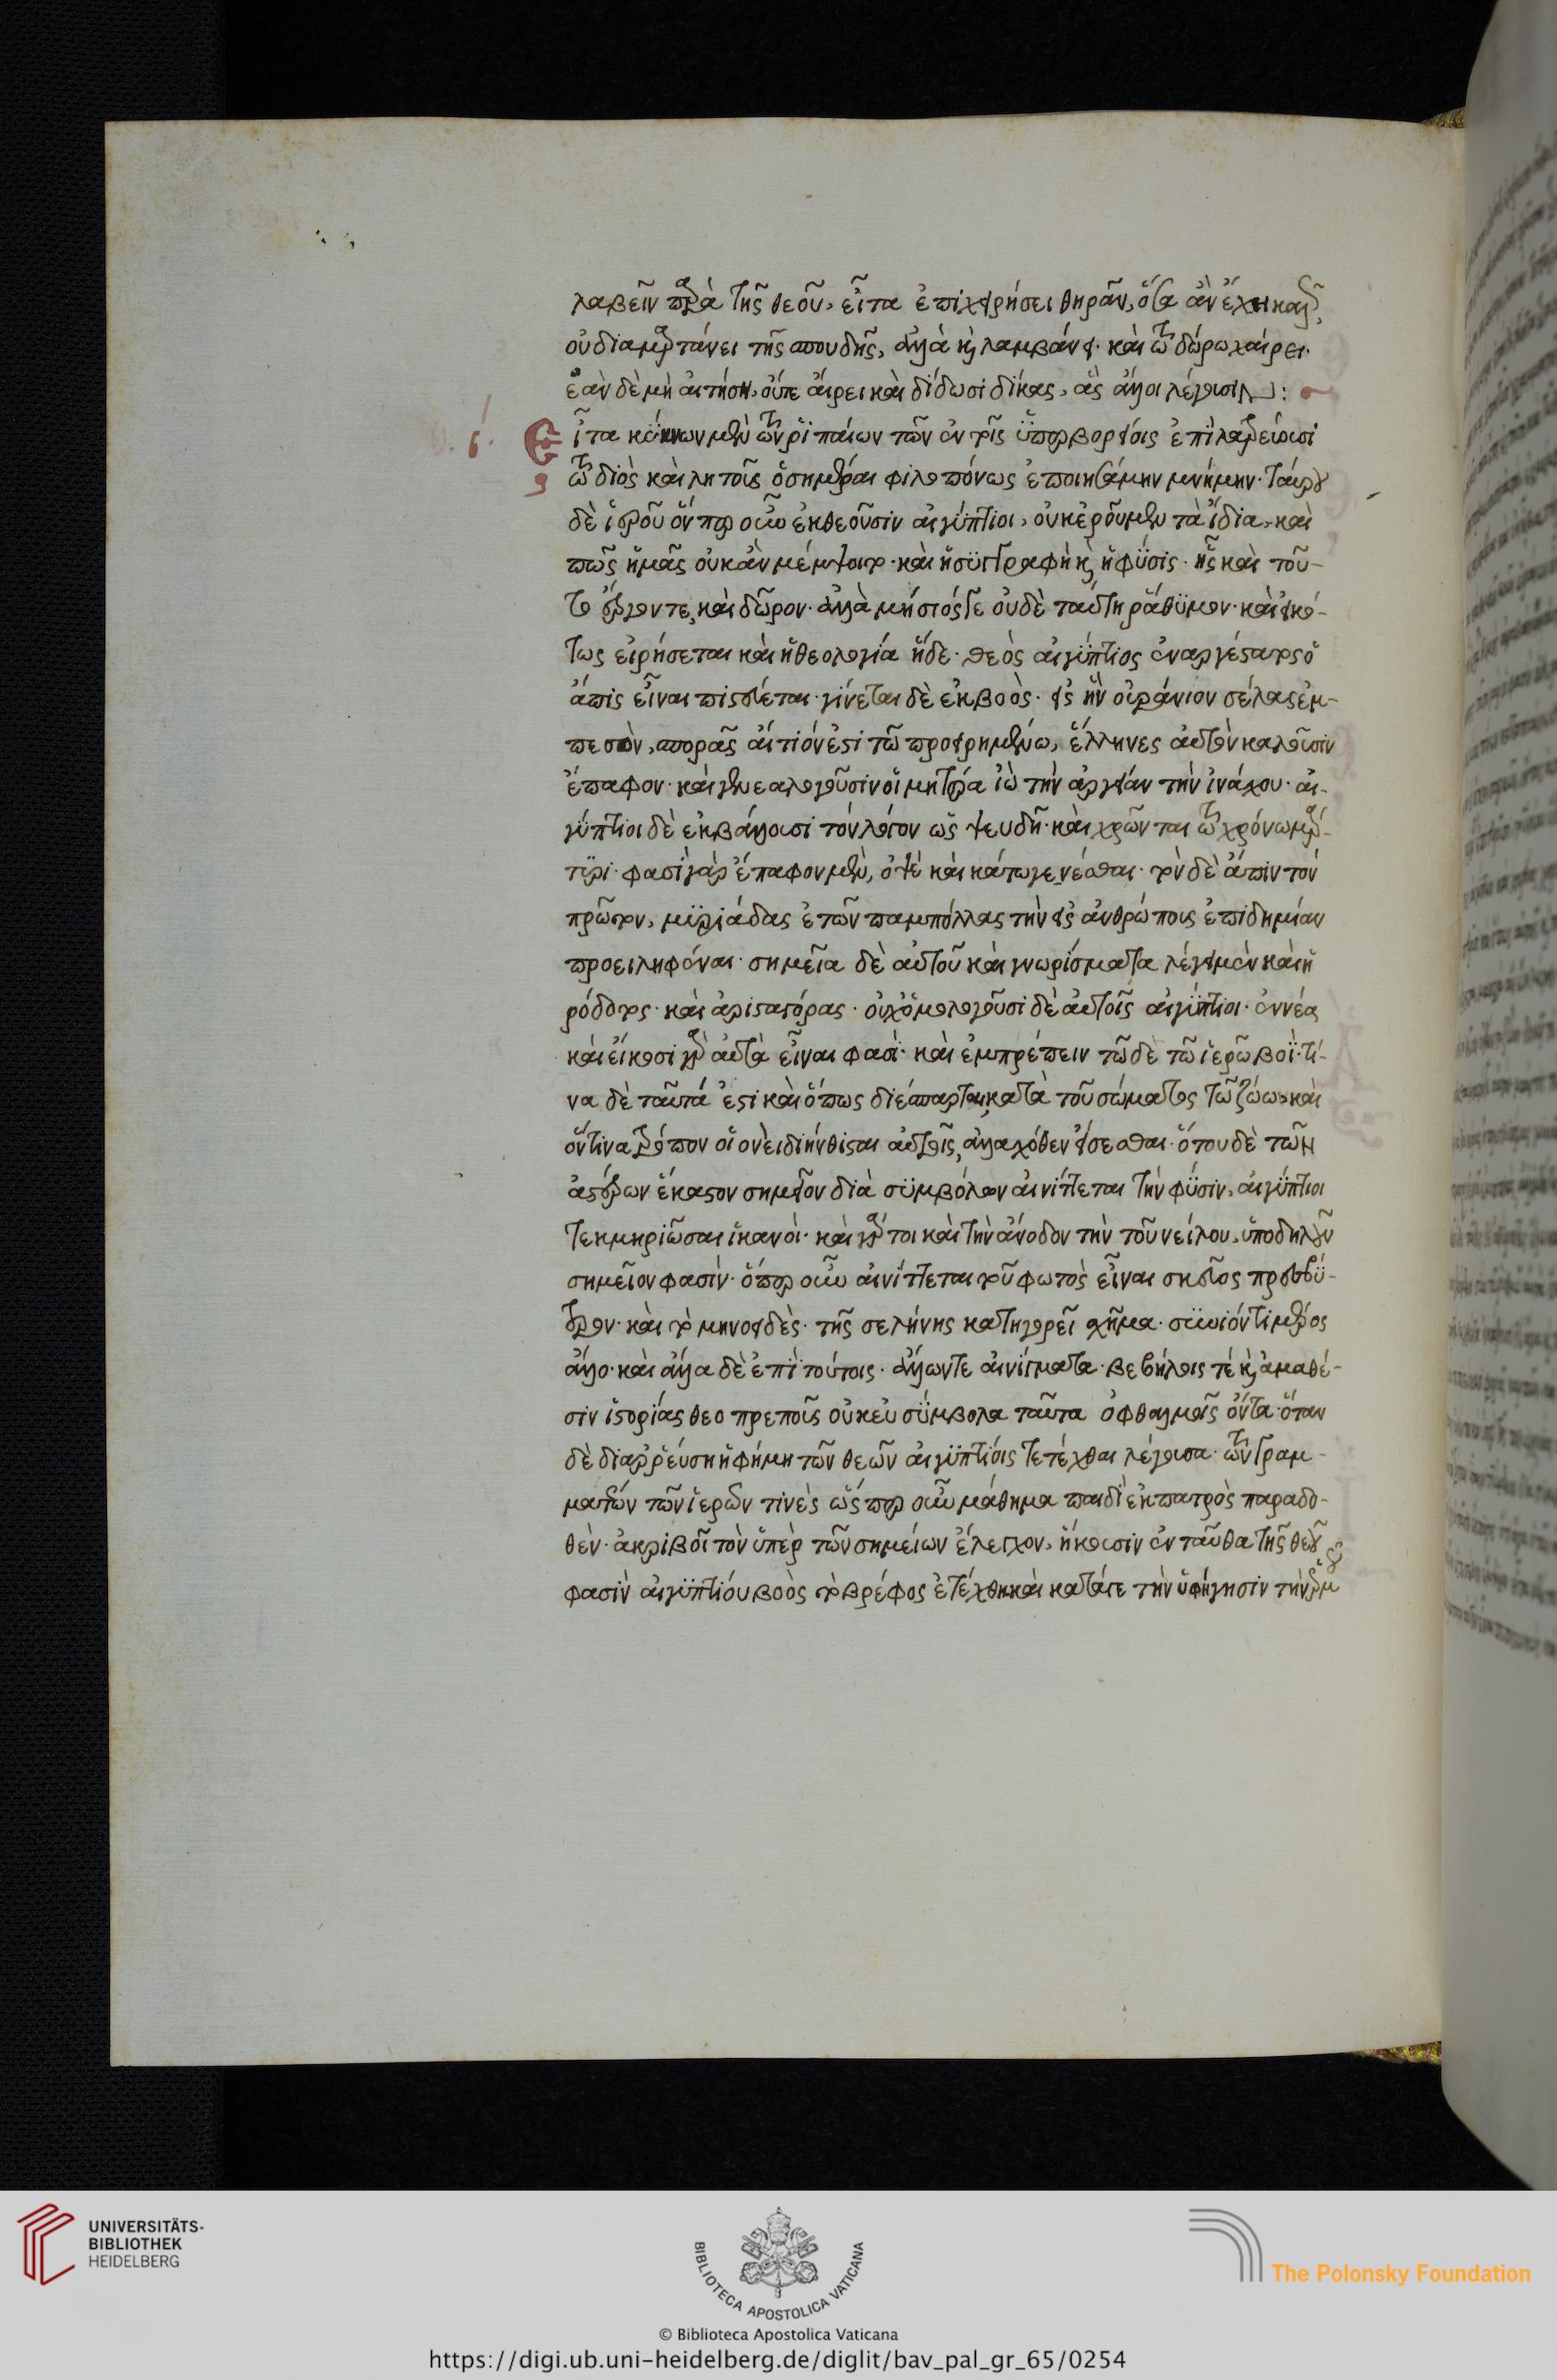 λαβεῖν παρὰ τῆς θεοῦ, εἶτα ἐπιχειρήσει θηρᾶν, ὅσα ἂν ἔχῃ καλῶς,
οὐ διαμαρτάνει τῆς σπουδῆς, ἀλλὰ καὶ λαμβάνει· καὶ τῷ δώρῳ χαίρει·
ἐὰν δὲ μὴ αἰτήσῃ, οὔτε αἱρεῖ καὶ δίδωσι δίκας, ἃς ἄλλοι λέγουσιν:
ι. Εἶτα κύκνων μὲν τῶν ῥιπαίων τῶν ἐν τοῖς ὑπερβορείοις ἐπὶ λατρείᾳ
τῶ διὸς καὶ λητοῦς ὁσημέραι φιλοπόνως ἐποιησάμην μνήμην· ταύρου
δὲ ἱεροῦ ὅνπερ οὖν ἐκθεοῦσιν αἰγύπτιοι, οὐκ ἐροῦμεν τὰ ἴδια, καὶ
πῶς ἡμᾶς οὐκ ἂν μέμψαιτο· καὶ ἡ συγγραφὴ καὶ ἡ φύσις· ἧς καὶ τοῦ-
το ἔργον τε, καὶ δῶρον· ἀλλὰ μὴ σιός γε οὐδὲ ταύτῃ ῥάθυμον· καὶ εἰκό-
τως εἰρήσεται καὶ ἡ θεολογία ἥδε· θεὸς αἰγύπτιος ἐναργέστατος ὁ
ἄπις εἶναι πιστεύεται· γίνεται δὲ ἐκ βοὸς· εἰς ἣν οὐράνιον σέλας ἐμ-
πεσὸν, σπορᾶς αἴτιόν ἐστι τῶ προειρημένω, ἕλληνες αὐτὸν καλοῦσιν
ἔπαφον· καὶ γενεαλογοῦσίν οἱ μητέρα ἰὼ τὴν ἀργείαν τὴν ἰνάχου· αἰ-
γύπτιοι δὲ ἐκβάλλουσι τὸν λόγον ὡς ψευδῆ· καὶ χρῶνται τῶ χρόνω μάρ-
τυρι· φασὶ γὰρ ἔπαφον μὲν, ὀψὲ καὶ κάτω γενέσθαι· τὸν δὲ ἄπιν τὸν
πρῶτον, μυριάδας ἐτῶν παμπόλλας τὴν εἰς ἀνθρώπους ἐπιδημίαν
προειληφέναι· σημεῖα δὲ αὐτοῦ καὶ γνωρίσματα λέγει μὲν καὶ ἡ
ρόδοτος· καὶ ἀρισταγόρας· οὐχ ὁμολογοῦσι δὲ αὐτοῖς αἰγύπτιοι· ἐννέα
καὶ εἴκοσι γὰρ αὐτὰ εἶναι φασὶ· καὶ ἐμπρέπειν τῶδε τῶ ἱερῶ βοΐ· τί-
να δὲ ταῦτά ἐστι καὶ ὅπως διέσπαρται κατὰ τοῦ σώματος τῶ ζώω, καὶ
ὅντινα τρόπον οἱονεὶ διήνθισται αὐτοῖς, ἀλλαχόθεν εἴσεσθαι· ὅτου δὲ τῶν
ἀστέρων ἕκαστον σημεῖον διὰ συμβόλων αἰνίττεται τὴν φύσιν, αἰγύπτιοι
τεκμηριῶσαι ἱκανοὶ· καὶ γάρ τοι καὶ τὴν ἄνοδον τὴν τοῦ νείλου, ὑποδηλοῦν
σημεῖον φασὶν· ὅπερ οὖν αἰνίττεται τοῦ φωτὸς εἶναι σκότος πρεσβύ-
τερον· καὶ τὸ μηνοειδὲς· τῆς σελήνης κατηγορεῖ σχῆμα· συνιόντι μέρος
ἄλλο· καὶ ἄλλα δὲ ἐπὶ τούτοις· ἄλλων τε αἰνίγματα· βεβήλοις τέ καὶ ἀμαθέ-
σιν ἱστορίας θεοπρεποῦς οὐκ εὐσύμβολα ταῦτα ὀφθαλμοῖς ὄντα· ὅταν
δὲ διαρρεύσῃ ἡ φήμη τῶν θεῶν αἰγυπτίοις τετέχθαι λέγουσα· τῶν γραμ-
ματέων τῶν ἱερῶν τινὲς ὥσπερ οὖν μάθημα παιδὶ ἐκ πατρὸς παραδο-
θὲν· ἀκριβοῦντες τὸν ὑπὲρ τῶν σημείων ἔλεγχον, ἥκουσιν ἐνταῦθα τῆς θεοῦ
φασὶν αἰγυπτίου βοὸς τὸ βρέφος ἐτέχθη καὶ κατά γε τὴν ὑφήγησιν τὴν ἑρμοῦ
UNIVERSITÄTS-
BIBLIOTHEK
HEIDELBERG
BIBLIOTECA APOSTOLICA VATICANA
The Polonsky Foundation
© Biblioteca Apostolica Vaticana
https://digi.ub.uni-heidelberg.de/diglit/bav_pal_gr_65/0254